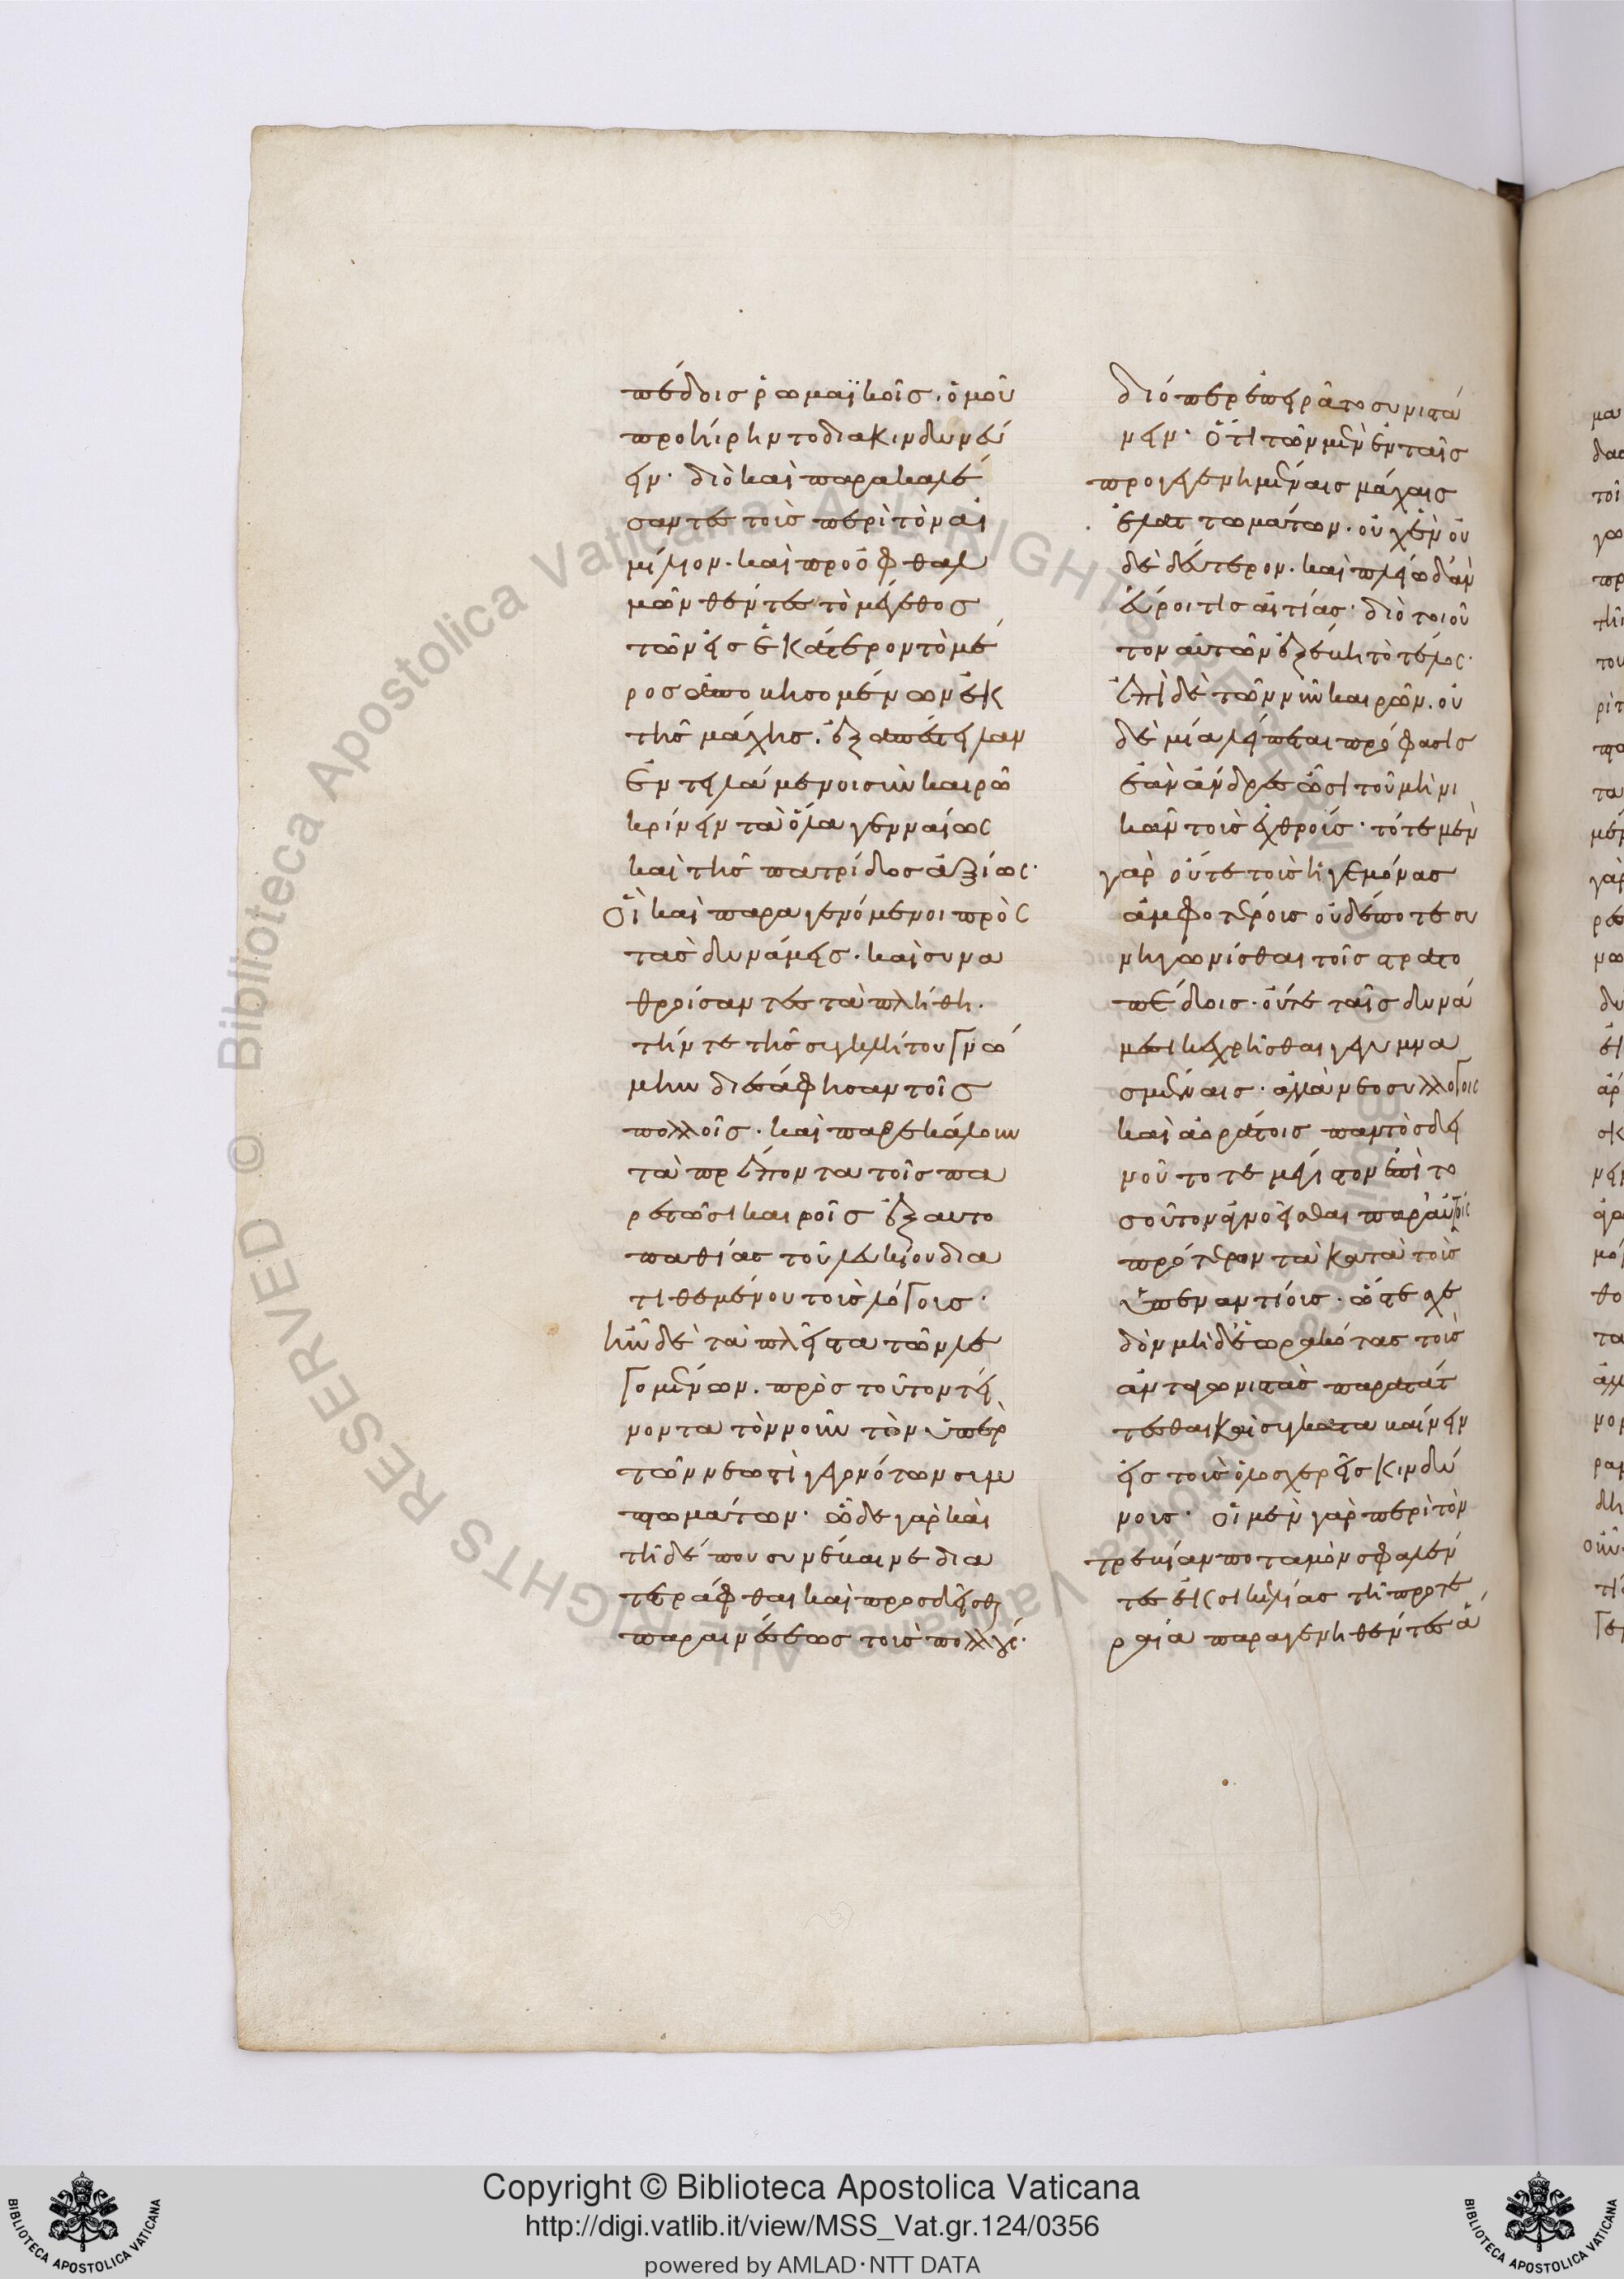 πέδοις ῥωμαϊκοῖς. ὁμοῦ
προήιρηντο διακινδυνεύ
ειν· διὸ καὶ παρακαλέ
σαντες τοὺς περὶ τὸν αἰ
μίλιον. καὶ προοφθαλ
μῶν θέντες τὸ μέγεθος
τῶν εἰς ἑκάτερον τὸ μέ
ρος ἀποβησομένων ἐκ
τῆς μάχης. ἐξαπέστειλαν
ἐντειλάμενοι σὺν καιρῶ
κρίνειν τὰ ὅλα γενναίως
καὶ τῆς πατρίδος ἀξίως·
Οἳ καὶ παραγενόμενοι πρὸς
τὰς δυνάμεις. καὶ συνα
θροίσαντες τὰ πλήθη.
τήν τε τῆς συγκλήτου γνώ
μην διεσάφησαν τοῖς
πολλοῖς. καὶ παρεκάλουν
τὰ πρέποντα τοῖς πα
ρεστῶσι καιροῖς ἐξ αυτο
παθίας τοῦ λευκίου δια
τιθεμένου τοὺς λόγους·
ἦν δὲ τὰ πλεῖστα τῶν λε
γομένων. πρὸς τοῦτον τεί
νοντα τὸν νοῦν τὸν ὑπὲρ
τῶν νεωστὶ γεγονότων συμ
πτωμάτων· ὧδε γὰρ καὶ
τῆδέ που συνέβαινε δια
τετράφθαι καὶ προσδεῖσθαι
παραινέσεως τοὺς πολλούς·
διόπερ ἐπειρᾶτο συνιστά
νειν· ὅτι τῶν μὲν ἐν ταῖς
προγεγενημέναις μάχαις
ἐλαττωμάτων. οὐχ ἓν οὐ
δὲ δεύτερον. καὶ πλείω δ' ἂν
εὕροι τις αἰτίας· διὸ τοιοῦ
τον αὐτῶν ἐξέβη τὸ τέλος·
ἐπὶ δὲ τῶν νῦν καιρῶν. οὐ
δὲ μία λείπεται πρόφασις
ἐὰν ἄνδρες ὦσι τοῦ μὴ νι
κᾶν τοὺς ἐχθρούς· τότε μὲν
γὰρ οὔτε τοὺς ἡγεμόνας
ἀμφοτέρους οὐδέποτε συ
νηγωνίσθαι τοῖς στρατο
πέδοις. οὔτε ταῖς δυνά
μεσι κεχρῆσθαι γεγυμνα
σμέναις· ἀλλὰ νεοσυλλόγοις
καὶ ἀοράτοις παντὸς δει
νοῦ τό τε μέγιστον ἐπὶ το
σοῦτον ἀγνοεῖσθαι παρ' αὐτοῖς
πρότερον τὰ κατὰ τοὺς
ὑπεναντίους. ὥστε σχε
δὸν μηδὲ ἑωρακότας τοὺς
ἀνταγωνιστὰς παρατάτ
τεσθαι καὶ συγκαταβαίνειν
εἰς τοὺς ὁλοσχερεῖς κινδύ
νους· οἱ μὲν γὰρ περὶ τὸν
τρεβίαν ποταμὸν σφαλέν
τες ἐκ σικελίας τῆ προτε
ραία παραγενηθέντες ἅ